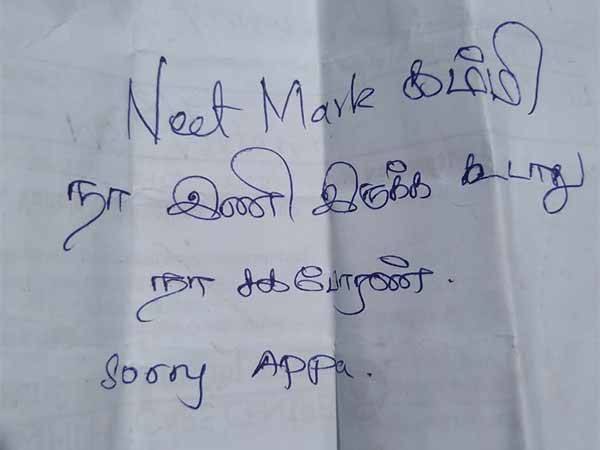 Neet Mark கம்மி
நா இணி இருக்க கூடாது
நா சகபோரண்.
Sorry Appa.